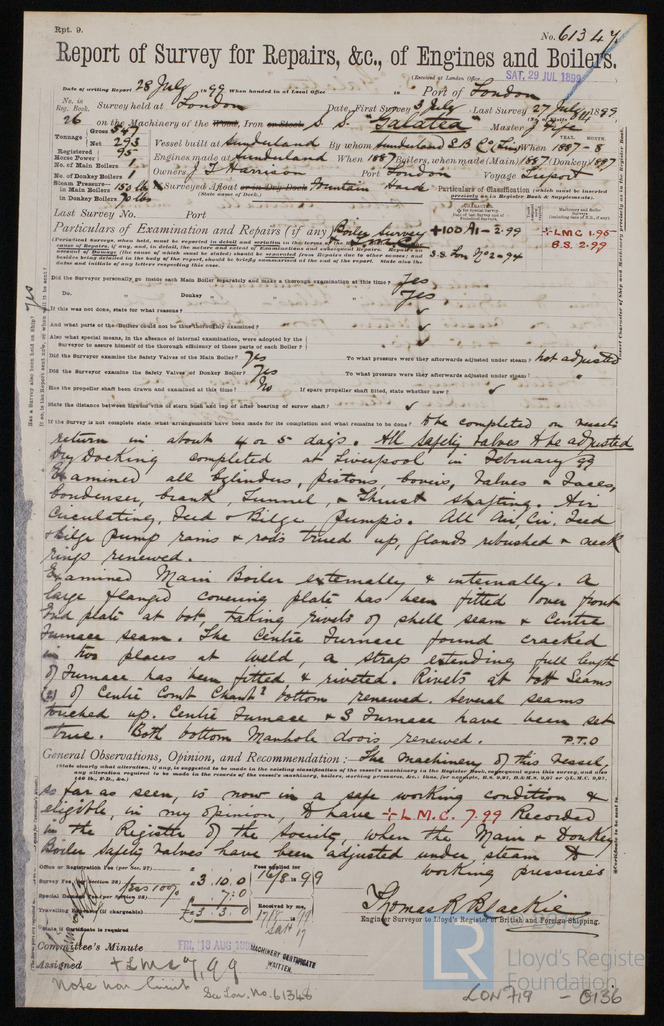 Rpt. 9.
No. 61347
Report of Survey for Repairs, &c., of Engines and Boilers.
(Received at London Office SAT. 29 JUL 1899
Date of writing Report 28 July 1899 When handed in at Local Office Port of London
No. in Reg. Book. Survey held at London Date, First Survey 3 July Last Survey 27 July 1899
26 on the Machinery of the Wood, Iron or Steel S. S. "Galatea" Master J. Fife
Tonnage Gross 547 Net 293 Vessel built at Sunderland By whom Sunderland S B Co When 1887-8
Registered Horse Power 95 Engines made at Sunderland When 1887 Boilers, when made (Main) 1887 (Donkey) 1887
No. of Main Boilers 1 Owners J T Harrison Port London Voyage
No. of Donkey Boilers 1
Steam Pressure—in Main Boilers 150 lbs If Surveyed Afloat or in Dry Dock Fountain
in Donkey Boilers 70 lbs (State name of Dock.)
Particulars of Classification (which must be inserted precisely as in Register Book & Supplements).
Last Survey No. Port
Particulars of Examination and Repairs (if any) Boiler Survey
+100A1-2.99
+LMC 1.95
B.S. 2.99
S.S. Lon No 2-94
Did the Surveyor personally go inside each Main Boiler separately and make a thorough examination at this time? Yes
Do. " Donkey " " " Yes
If this was not done, state for what reasons?
And what parts of the Boilers could not be thus thoroughly examined?
Also what special means, in the absence of internal examination, were adopted by the
Surveyor to assure himself of the thorough efficiency of those parts of each Boiler?
Did the Surveyor examine the Safety Valves of the Main Boiler? Yes To what pressure were they afterwards adjusted under steam? not adjusted
Did the Surveyor examine the Safety Valves of Donkey Boiler? Yes To what pressure were they afterwards adjusted under steam?
Has the propeller shaft been drawn and examined at this time? No If spare propeller shaft fitted, state whether new?
State the distance between lignum vitæ of stern bush and top of after bearing of screw shaft?
If the Survey is not complete state what arrangements have been made for its completion and what remains to be done? To be completed on vessels
return in about 4 or 5 days. All safety valves to be adjusted
Dry Docking completed at Liverpool in February 99
Examined all Cylinders, pistons, covers, valves & faces,
Condenser, Crank, Tunnel, & Thrust shafting. Air
Circulating, Feed & Bilge pumps. All Air, Cir, Feed
& bilge pump rams & rods trued up, glands rebushed & neck
rings renewed.
Examined Main Boiler externally & internally. A
large flanged covering plate has been fitted over front
End plate at bot, taking rivets of shell seam & Centre
Furnace seam. The Centre Furnace found cracked
in two places at weld, a strap extending full length
of furnace has been fitted & riveted. Rivets at bott seams
(2) of Centre Comt Chambr bottom renewed. Several seams
touched up. Centre Furnace & S Furnace have been set
true. Both bottom Manhole doors renewed. P.T.O
General Observations, Opinion, and Recommendation:— The Machinery of this vessel,
so far as seen, is now in a safe working condition &
eligible, in my opinion, to have +L.M.C. 7.99 Recorded
in the Register of the Society, when the Main & Donkey
Boiler safety valves have been adjusted under steam to
working pressures
Office or Registration Fee (per Sec. 27)
Survey Fee (per Section 28) £ 3.10.0
less 10% 7:0
£ 3.3.0
Travelling Expenses (if chargeable)
Fees applied for 16/8 1899
Received by me, 17/8 1899
Thomas R Blackie
Engineer Surveyor to Lloyd's Register of British and Foreign Shipping.
Committee's Minute FRI, 18 AUG 1899
Assigned +LMC 7,99
MACHINERY CERTIFICATE WRITTEN.
See Lon. No. 61346
LR Lloyd's Register Foundation
LON 719 - 0136